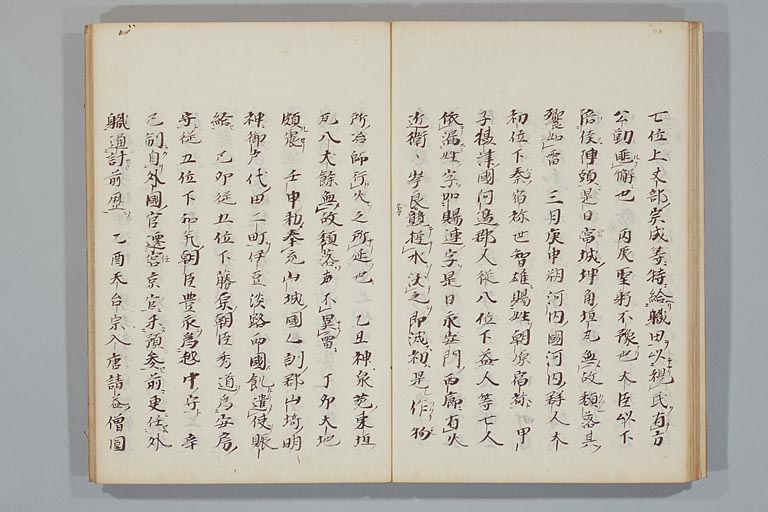 七位上丈部宗成等特給職田以視氏有方
公勤匪懈也 丙辰聖躬不豫也 大臣以下
陪侍陣頭是日宮城坤角垣瓦無故頽落其
響如雷 三月庚申朔河内國河内郡人大
初位下秦宿祢世智雄賜姓朝原宿祢 甲
子攝津國河邊郡人従八位下 人等七人
依 姓字即賜連字是日永安門西廊有火
近衛 岑良 水沃之即滅初是作物
所冶師 火之所延也 乙丑神泉苑東垣
瓦八丈餘無故頽落声不異雷 丁卯大地
頗震 壬申勅奉充山城國乙訓郡山埼明
神御戸代田二町伊豆淡路兩國飢遣使賑
給 己卯従五位下藤原朝臣秀道為安房
守従五位下 朝臣豊永為越中守 辛
巳制自外國官遷宮京官未預参前更任外
軄通計前歴 乙酉天台宗入唐請益僧圓